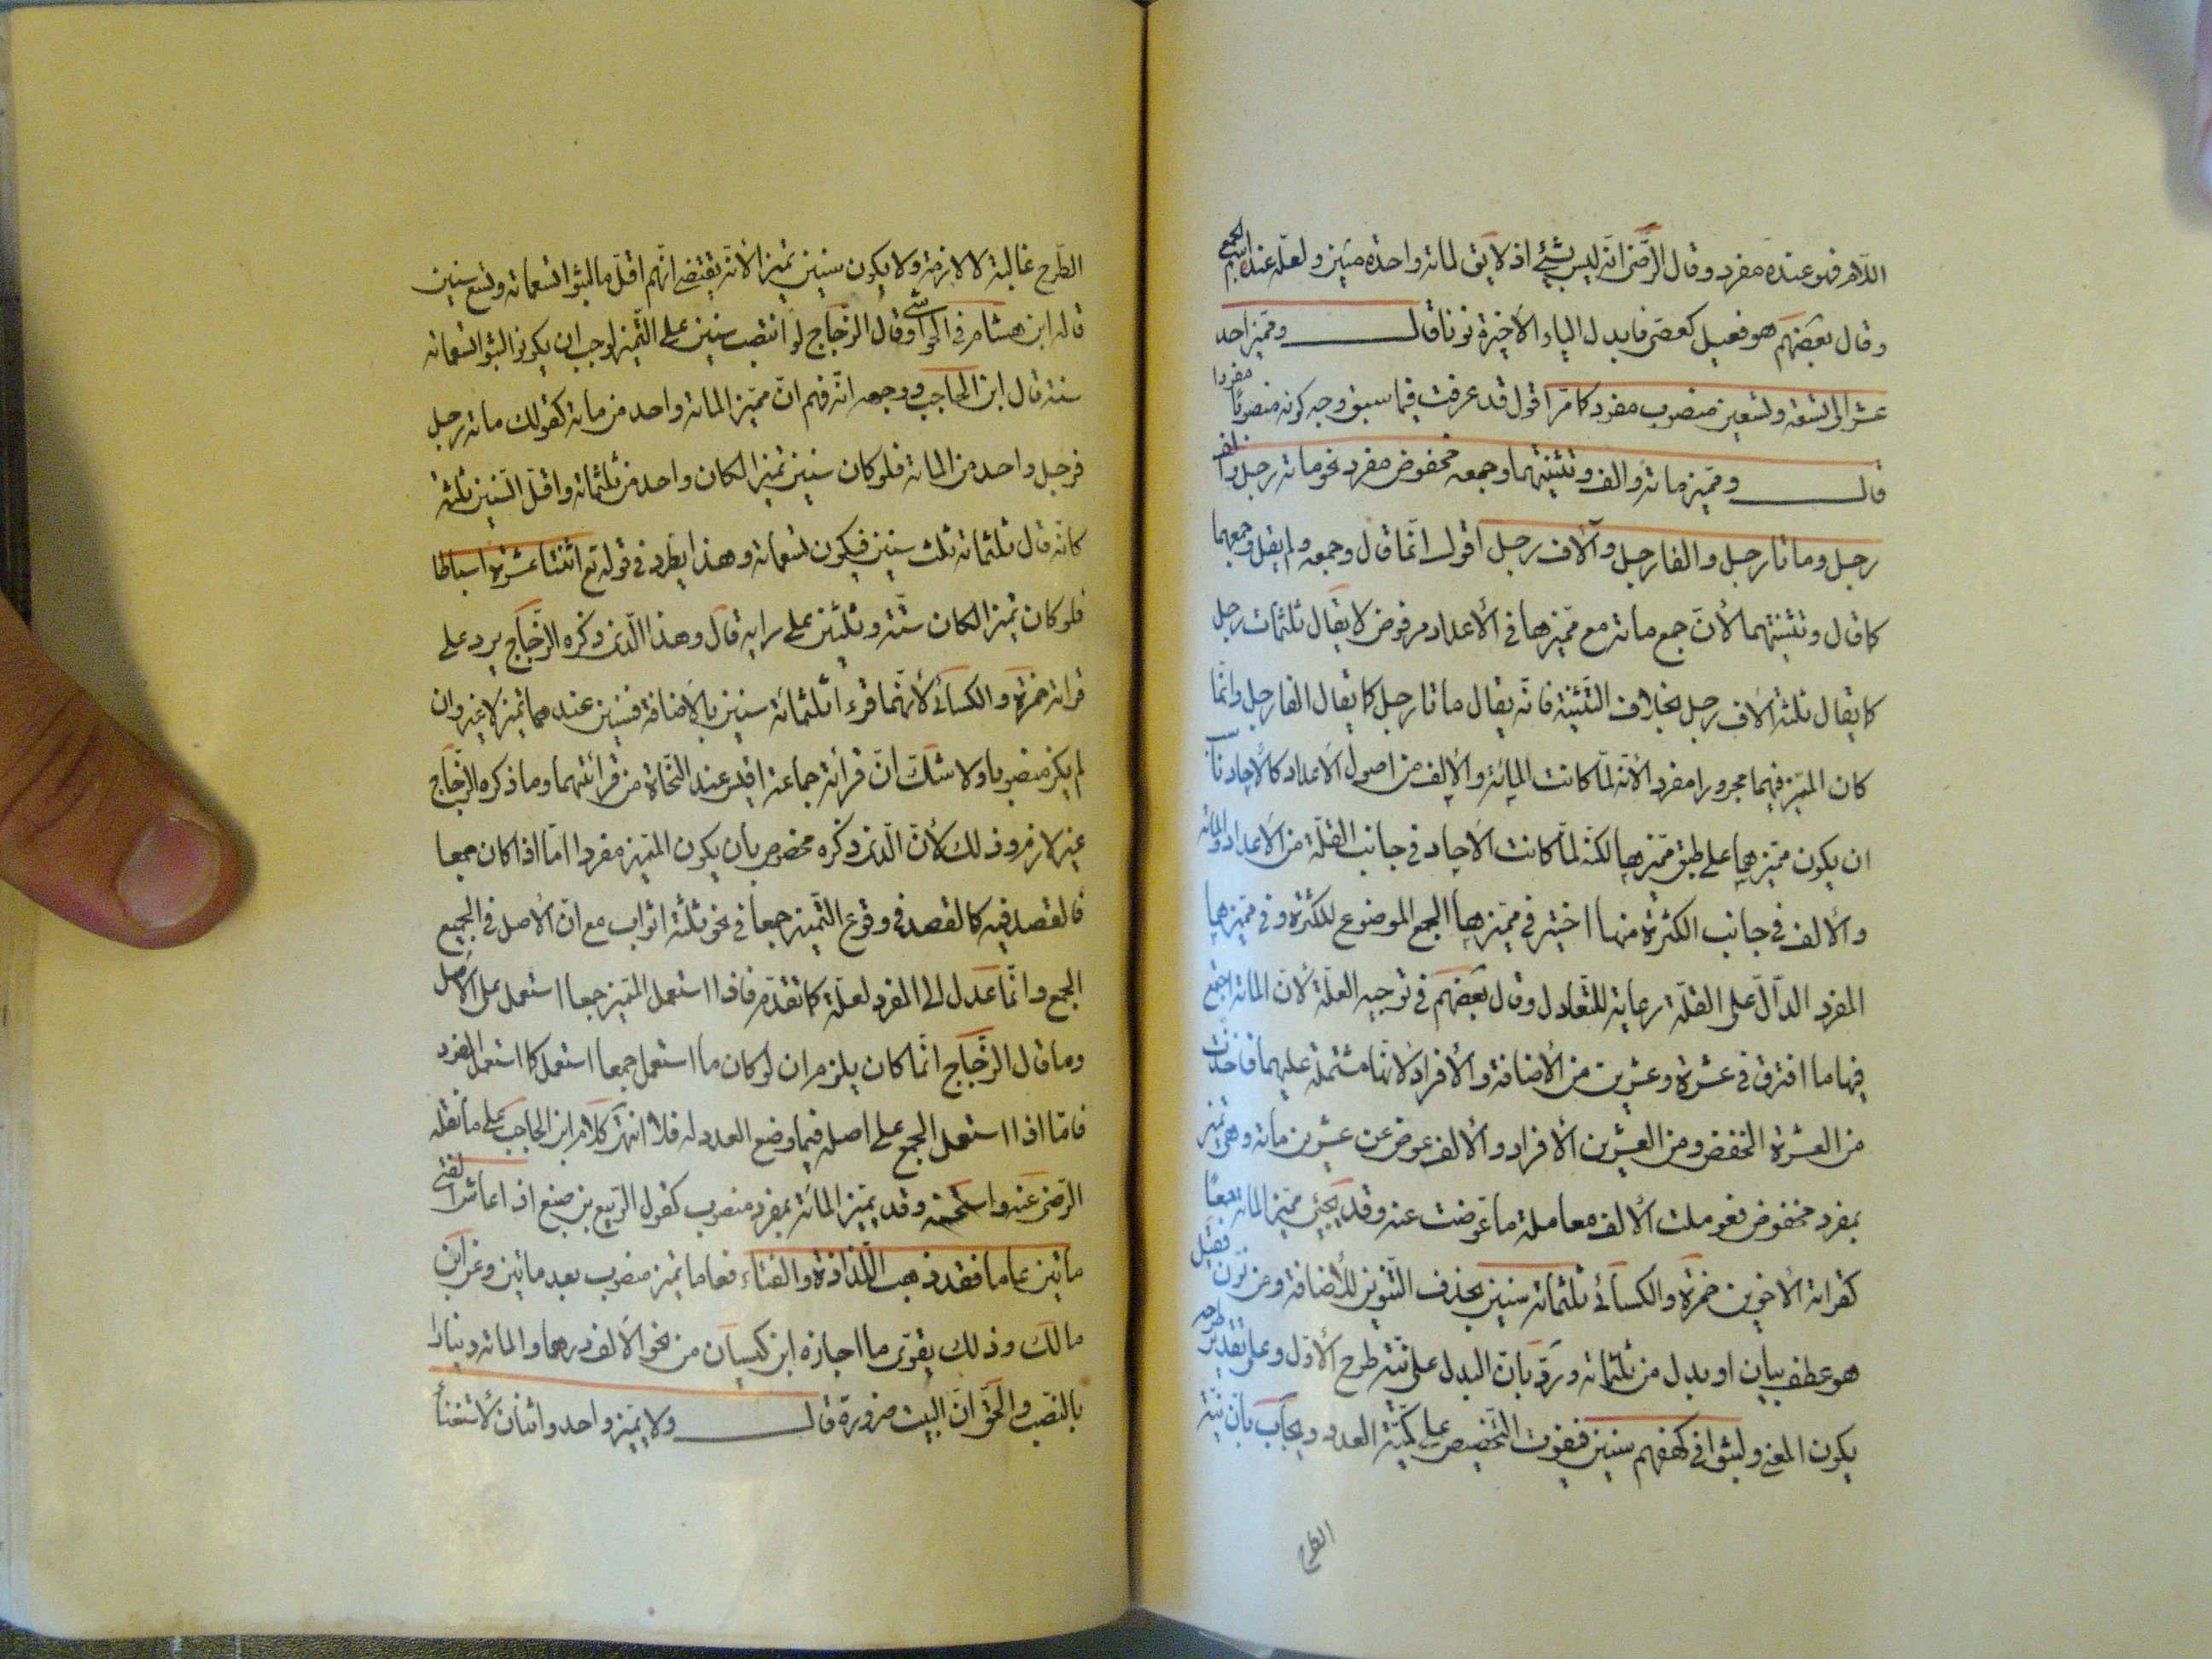 اللام فهو عنده مفرد وقال الرضى انه ليس بشئ اذ لا يق لمائة واحدة مئين ولعله عنده اسم الجمع
وقال بعضهم هو فعيل كعصى فابدل الياء الاخيرة نونا قال ومميز احد
عشر الى تسعة وتسعين منصوب مفرد كما مرّ اقول قد عرفت فيما سبق وجه كونه منصوبًا مفردا
قال ومميز مائة والف وتثنيتهما وجمعه مخفوض مفرد نحو مائة رجل والف
رجل ومائتا رجل والفا رجل وآلاف رجل اقول انّما قال وجمعه ولم يقل وجمعهما
كما قال وتثنيتهما لأنّ جمع مائة مع مميّزها فى الأعداد مرفوض لا يقال ثلثمات رجل
كما يقال ثلثة آلاف رجل بخلاف التّثنية فانّه يقال مائتا رجل كما يقال الفا رجل وانّما
كان المميّز فيهما مجرورا مفردا لأنّه لمّا كانت المائة والألف من اصول الأعداد كالأحاد ناسب
ان يكون مميّزهما على طبق مميّزها لكنّه لمّا كانت الآحاد فى جانب القلّة من الأعداد والمائة
والألف فى جانب الكثرة منها اختير فى مميّزها الجمع الموضوع للكثرة وفى مميّزهما
المفرد الدّالّ على القلّة رعاية للتّعادل وقال بعضهم فى توجيه العلّة لأنّ المائة اجتمع
فيها ما افترق فى عشرة وعشرين من الأضافة والأفراد لأنّها مشتملة عليهما فاخذت
من العشرة الخفض ومن العشرين الأفراد والألف عوض عن عشرين مائة وهى تميز
بمفرد مخفوض فعوملت الألف معاملة ما عوّضت عنه وقد يجئ مميّز المائة جمعًا
كقرائة الأخوين حمزة والكسائى ثلثمائة سنين بحذف التنوين للأضافة ومن نوّن فقيل
هو عطف بيان او بدل من ثلثمائة وردّ بانّ البدل على نيّة طرح الأوّل وعلى تقدير طرحه
يكون المعنى ولبثوا فى كهفهم سنين فيفوت التّخصيص على كميّة العدد ويجاب بانّ نيّة
الطرح
الطّرح غالبة لا لازمة ولا يكون سنين تميزا لأنّه يقتضى انّهم اقلّ ما لبثوا تسعمائة وتسع سنين
قاله ابن هشام فى الحواشى وقال الزّجّاج لو انتصب سنين على التّميز لوجب ان يكونوا لبثوا تسعمائة
سنة قال ابن الحاجب ووجهه انّه فهم انّ مميّز المائة واحد من مائة كقولك مائة رجل
فرجل واحد من المائة فلو كان سنين تميزا لكان واحد من ثلثمائة واقلّ السّنين ثلثة
كانّه قال ثلثمائة ثلث سنين فيكون تسعمائة وهذا يطّرد فى قوله تع اثنتا عشرة اسباطا
فلو كان تميزا لكان ستّة وثلثين على رايه قال وهذا الّذى ذكره الزّجّاج يرد على
قرائة حمزة والكسائى لأنّهما قرءا ثلثمائة سنين بالأضافة فسنين عندهما تميز لا غير وان
لم يكن منصوبا ولا شكّ انّ قرائة جماعة اقعد عند النّحاة من قرائتهما وما ذكره الزّجّاج
غير لازم وذلك لأنّ الّذى ذكره مخصوص بأن يكون المميّز مفردا امّا اذا كان جمعا
فالقصد فيه كالقصد فى وقوع التّميز جمعا فى نحو ثلثة اثواب مع انّ الأصل فى الجميع
الجمع وانّما عدل الى المفرد لعلّة كما تقدّم فاذا استعمل التميز جمعا استعمل على الأصل
وما قال الزّجّاج انّما كان يلزم ان لو كان ما استعمل جمعا استعمل كما استعمل المفرد
فامّا اذا استعمل الجمع على اصله فيما وضع العدد له فلا انتهى كلام ابن الحاجب على ما نقله
الرّضى عنه واستحسنه وقد يميّز المائة بمفرد منصوب كقول الرّبيع بن ضبع اذا عاش الفتى
مائتين عاما فقد ذهب اللّذاذة والفتاء فعاما تميز منصوب بعد مائتين وعن ابن
مالك وذلك يقوّى ما اجازه ابن كيسان من نحو الألف درهما والمائة دينارا
بالنّصب والحقّ انّ البيت ضرورة قال ولا يميّز واحد واثنان لأستغناء